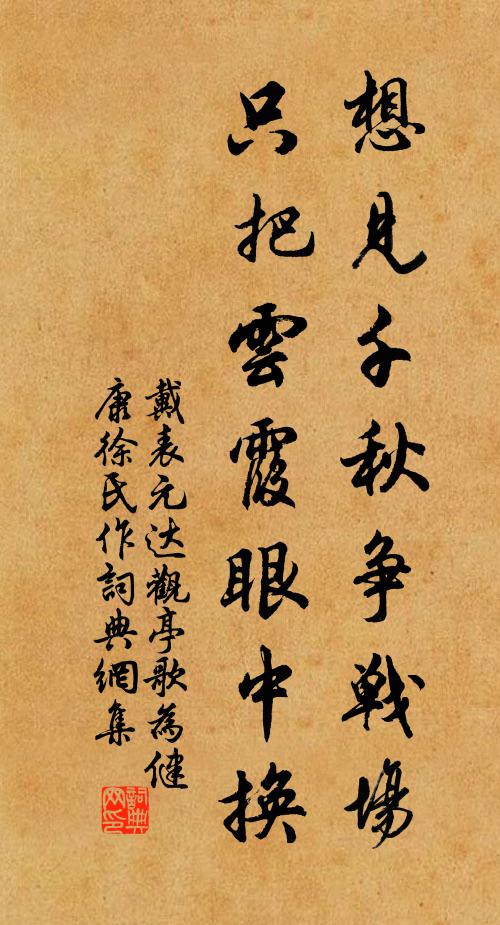 想見千秋争戰場
只把雲霞眼中換
戴表元达觀亭歌為健
康徐氏作詞典網集
詞典網印